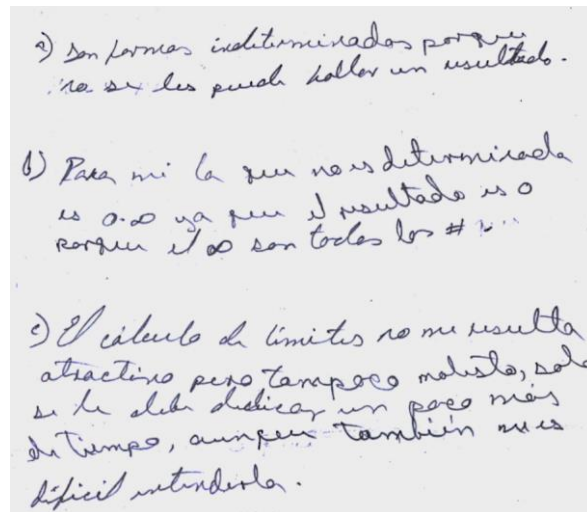 a) Son formas indeterminadas porque
no se les puede hallar un resultado.
b) Para mi la que no es determinada
es 0.∞ ya que el resultado es 0
porque el ∞ son todos los # ...
c) El cálculo de límites no me resulta
atractivo pero tampoco molesto, solo
se le debe dedicar un poco más
de tiempo, aunque también no es
díficil entenderla.